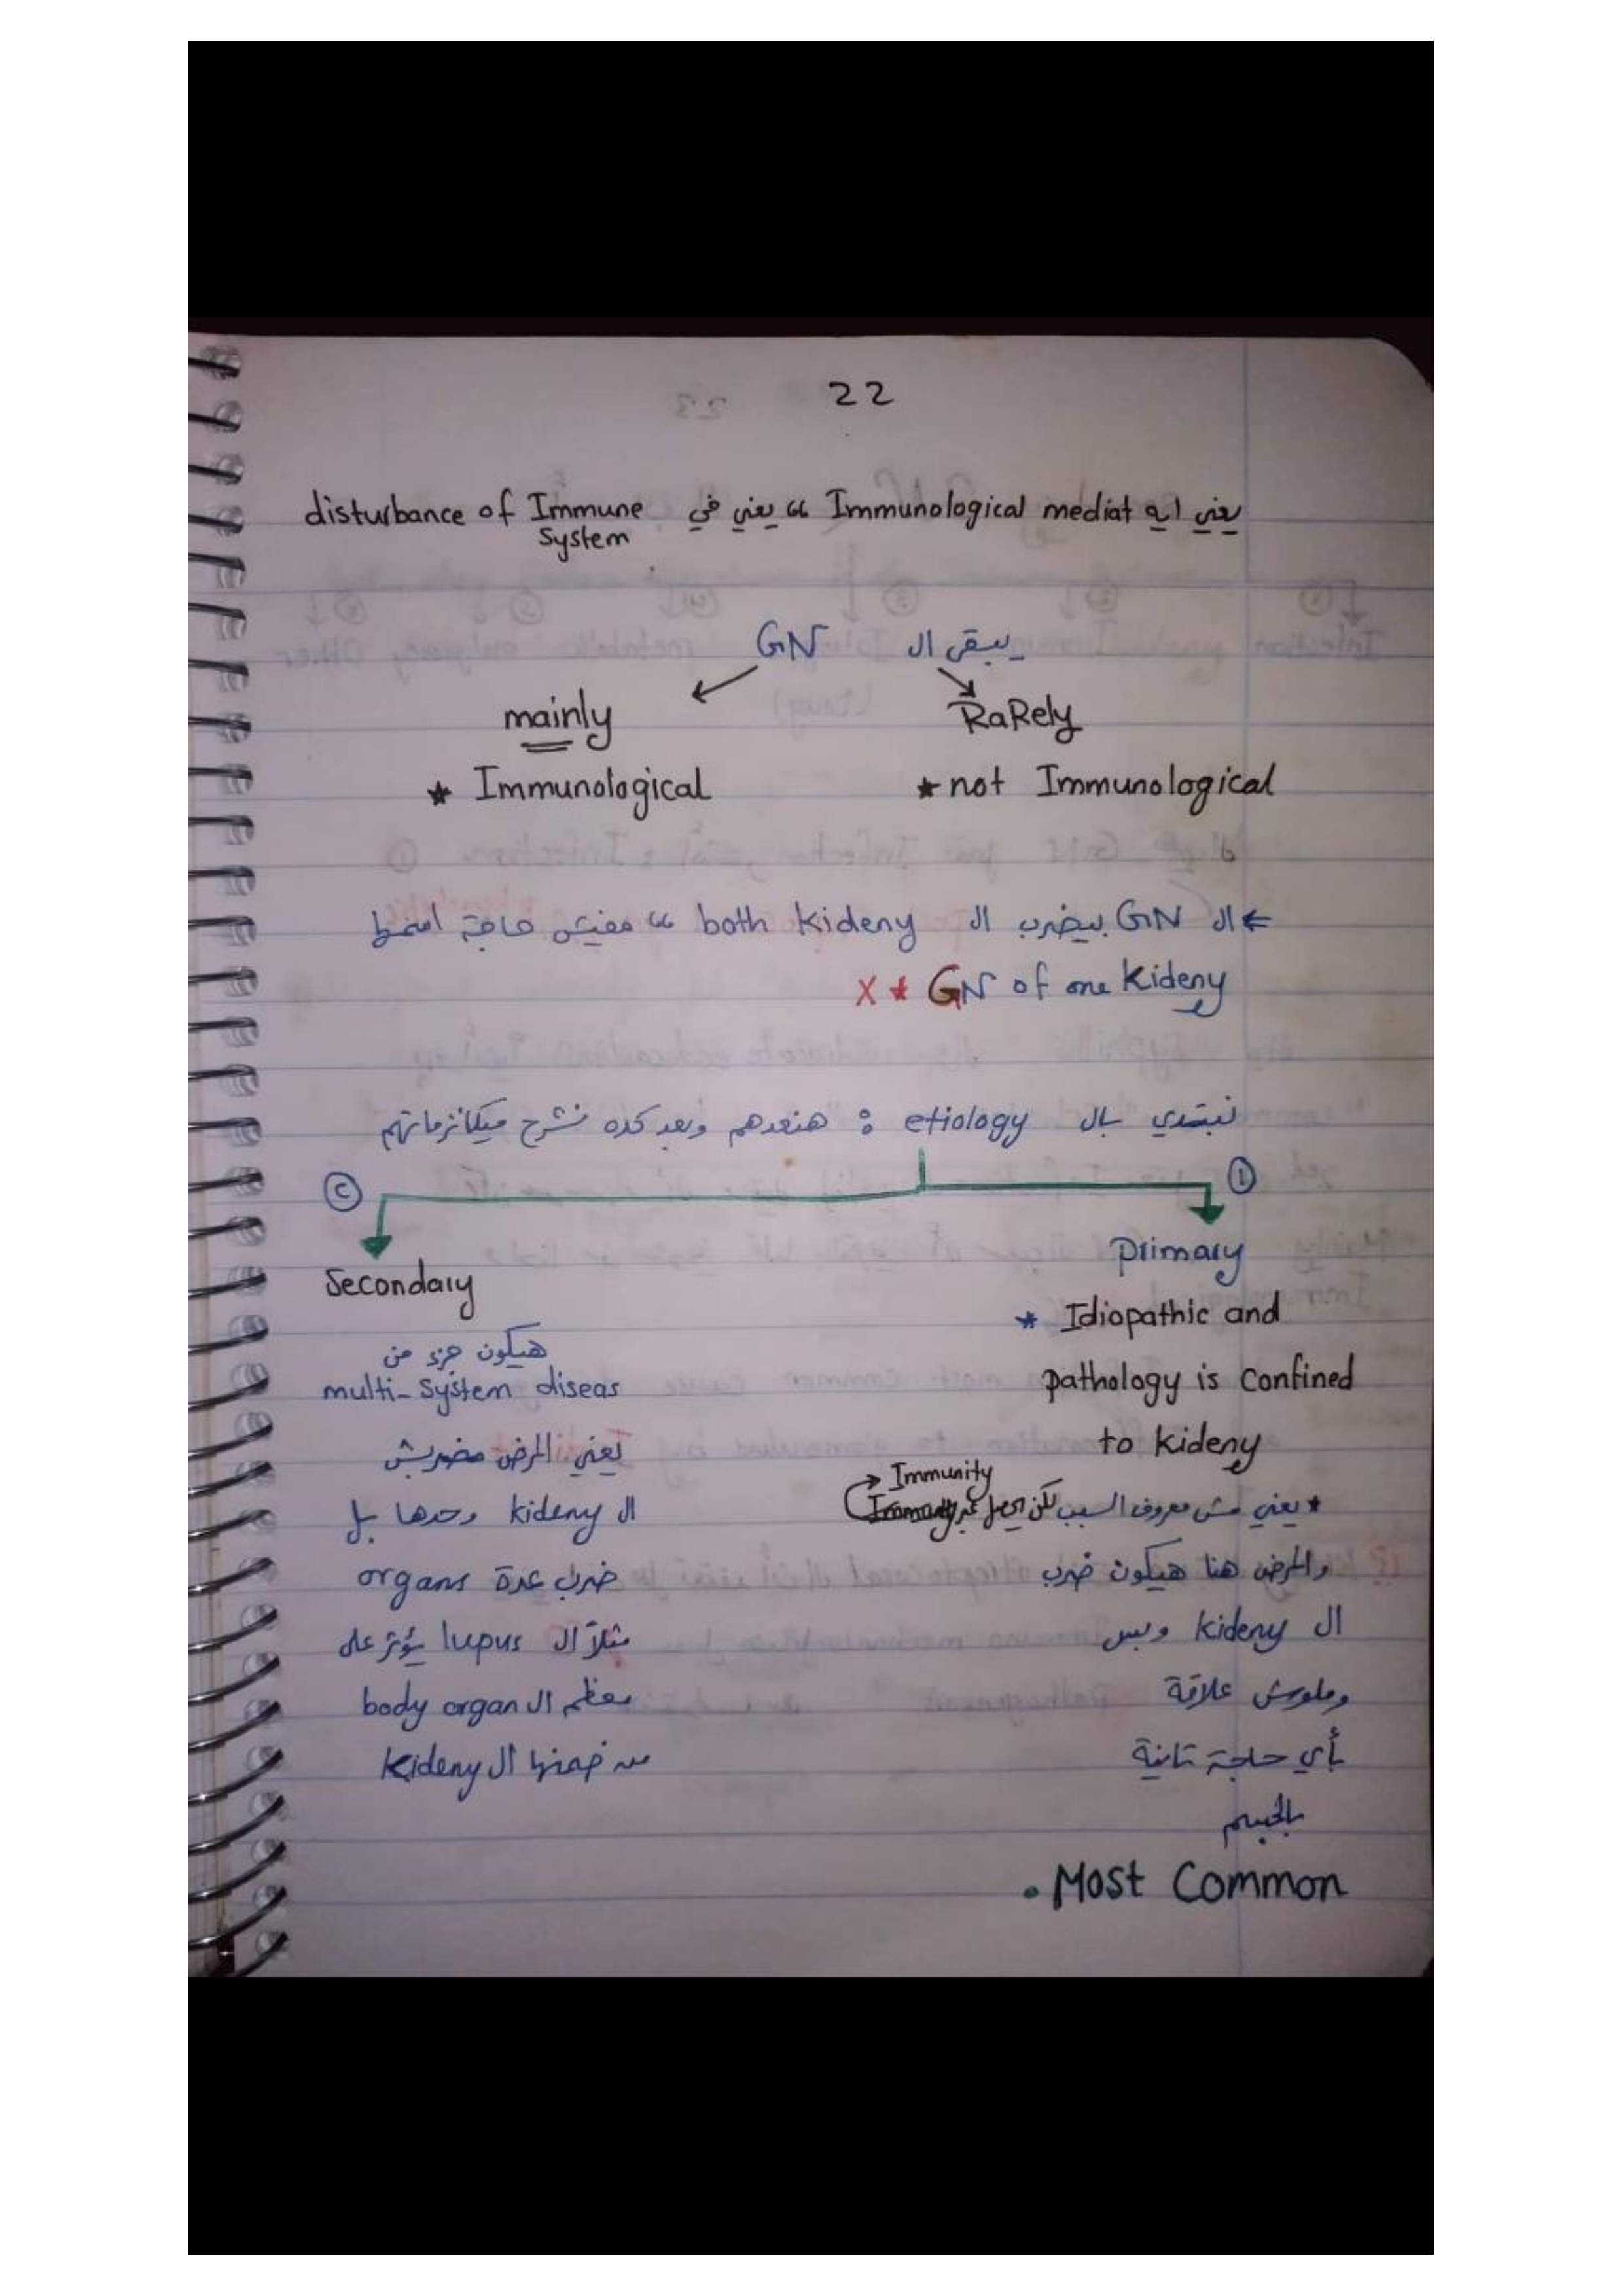 22
يعني ايه Immunological mediat ،، يعني في disturbance of Immune
System
يبقى ال GN
mainly
RaRely
* Immunological
* not Immunological
← ال GN بيضرب ال both kideny ،، مفيش حاجة اسمها
X * GN of one kideny
نبتدي بال etiology : هنعدهم وبعد كده نشرح ميكانزماتهم
①
Primary
* Idiopathic and
pathology is confined
to kideny
→ Immunity
* يعني مش معروف السبب لكن
والمرض هنا هيكون ضرب
ال kideny وبس
وملوش علاقة
بأي حاجة تانية
بالجسم
. Most Common
②
Secondary
هيكون جزء من
multi-system diseas
يعني المرض مضربش
ال kideny وحدها بل
ضرب عدة organs
مثلاً ال lupus يؤثر على
معظم ال body organ
من ضمنها ال kideny